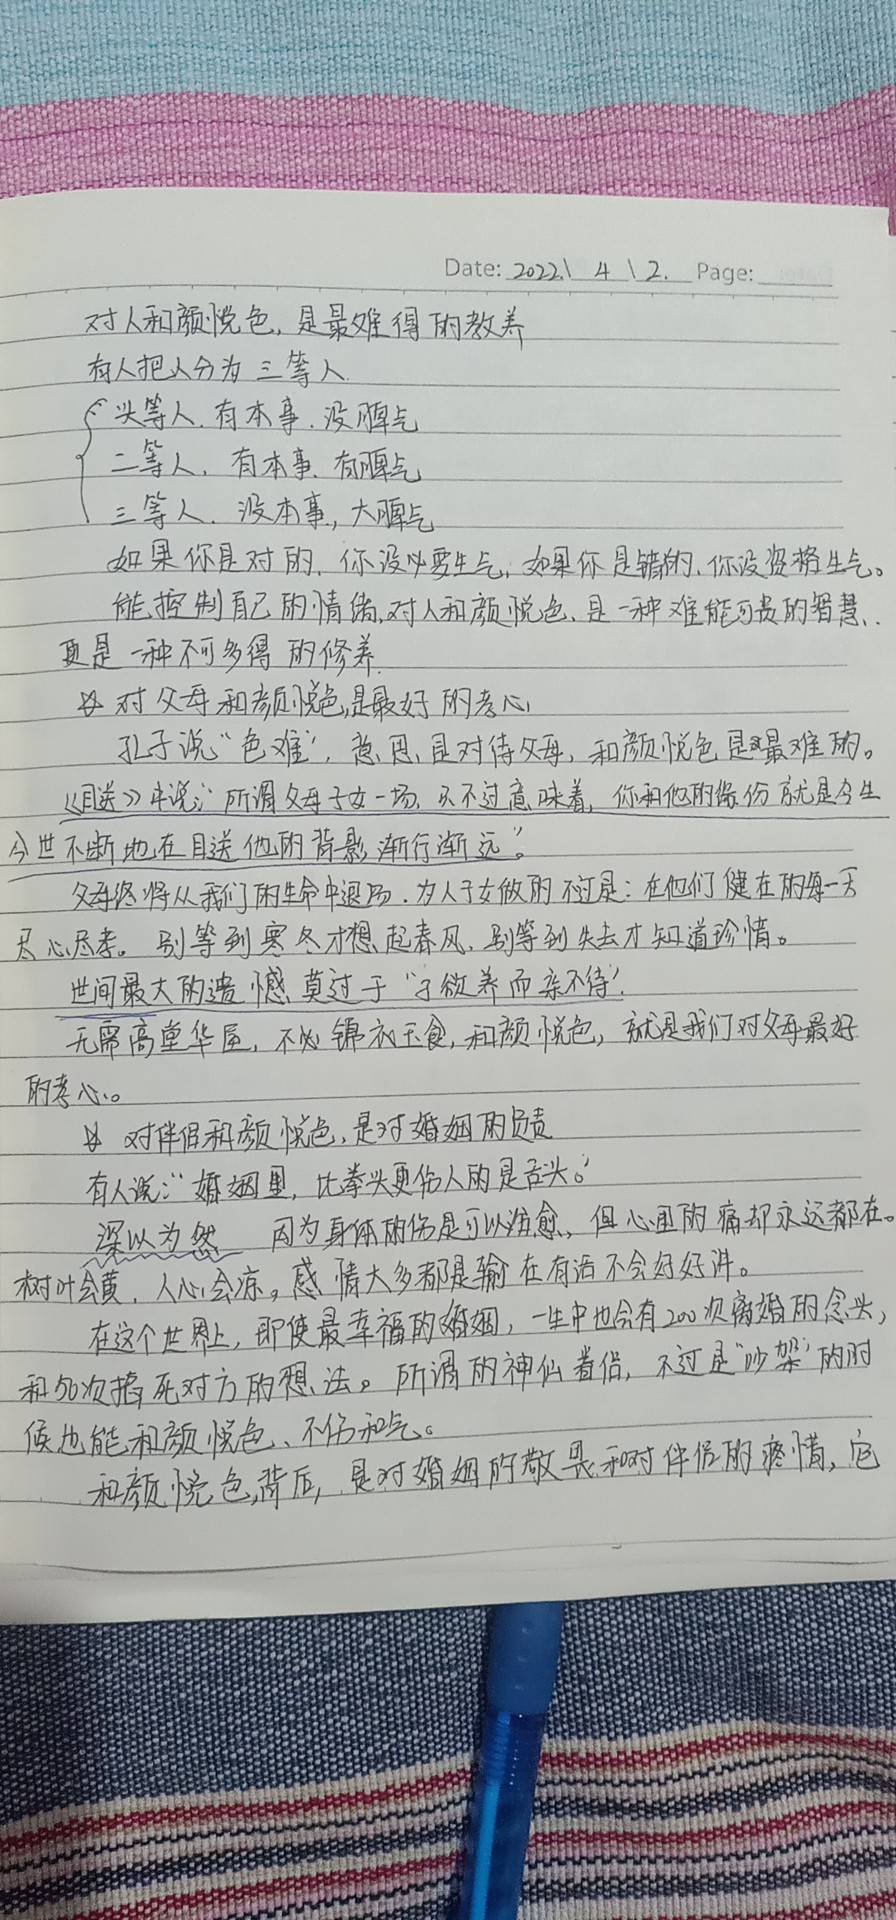 Date: 2022 \ 4 \ 2. Page:
对人和颜悦色,是最难得的教养
有人把人分为三等人
头等人.有本事.没脾气
二等人.有本事.有脾气
三等人.没本事,大脾气
如果你是对的,你没必要生气,如果你是错的,你没资格生气。
能控制自己的情绪,对人和颜悦色,是一种难能可贵的智慧,
更是一种不可多得的修养
对父母和颜悦色,是最好的孝心
孔子说“色难”,意思是对待父母,和颜悦色是最难的。
《目送》中说:“所谓父母子女一场,只不过意味着,你和他的缘份就是今生
今世不断地在目送他的背影渐行渐远”。
父母终将从我们的生命中退场.为人子女做的不过是:在他们健在的每一天
尽心尽孝。别等到寒冬才想起春风,别等到失去才知道珍惜。
世间最大的遗憾莫过于“子欲养而亲不待”.
无需高堂华屋,不必锦衣玉食,和颜悦色,就是我们对父母最好
的孝心。
对伴侣和颜悦色,是对婚姻的负责
有人说:“婚姻里,比拳头更伤人的是舌头。”
深以为然 因为身体的伤是可以治愈,但心里的痛却永远都在。
树叶会黄,人心会凉。感情大多都是输在有话不会好好讲。
在这个世界上,即使最幸福的婚姻,一生中也会有200次离婚的念头,
和50次掐死对方的想法。所谓的神仙眷侣,不过是“吵架”的时
候也能和颜悦色、不伤和气。
和颜悦色背后,是对婚姻的敬畏和对伴侣的疼惜,它